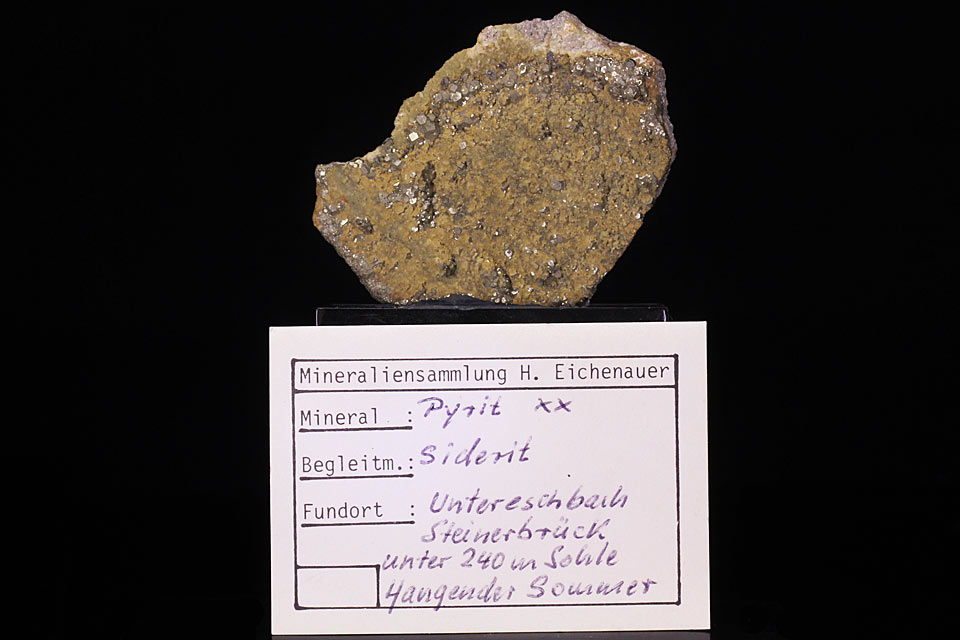 Mineraliensammlung H. Eichenauer
Mineral : Pyrit xx
Begleitm.: Siderit
Fundort : Untereschbach
Steinerbrück
unter 240 m Sohle
Hangender Sommer